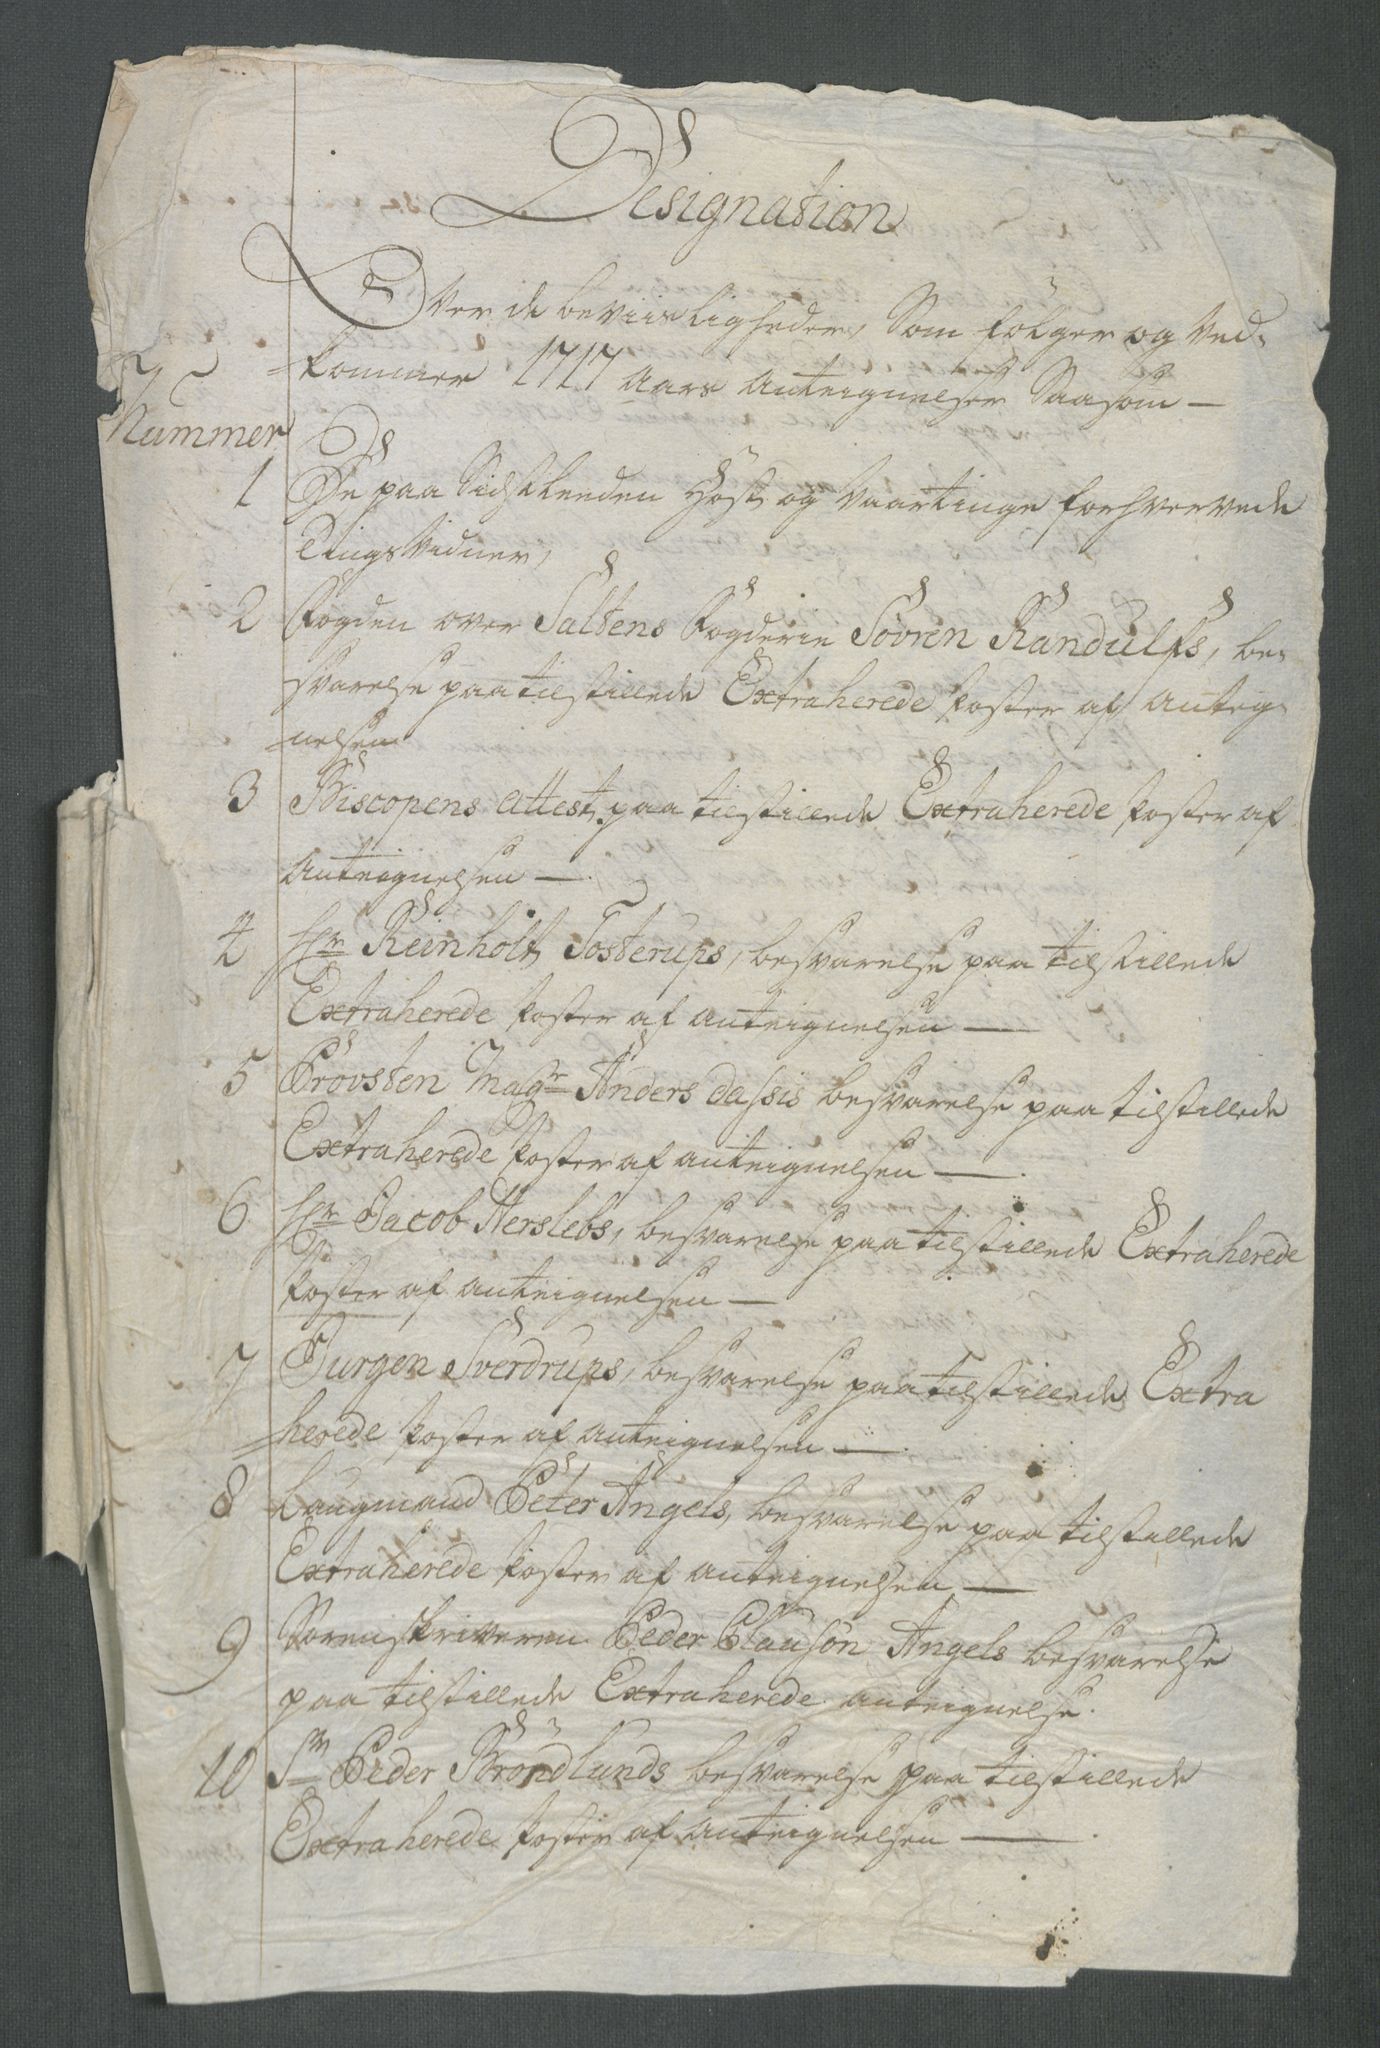 Designation
Over de beviisligheder, Som følger og ved-
kommer 1717 Aars Anteignelser Saasom —
Nummer
1 De paa Sidstleeden Høst og Vaartinge forhvervede
Tings Vidner,
2 Fogden over Saltens Fogderie Søvren Randulfs, be-
svarelse paa tilstillede Extraherede Poster af Anteg-
nelsen
3 Biscopens Attest, paa tilstillede Extraherede Poster af
Anteignelsen —
4 Hr Reinholt Tosterups, besvarelse paa tilstillede
Extraherede Poster af Anteignelsen —
5 Prousten Magr Anders Dassis besvarelse paa tilstillede
Extraherede Poster af anteignelsen —
6 Hr Jacob Herslebs, besvarelse paa tilstillede Extraherede
Poster af Anteignelsen —
7 Jurgen Sverdrups, besvarelse paa tilstillede Extra
herede Poster af Anteignelsen —
8 Laugmand Peter Angels, besvarelse paa tilstillede
Extraherede Poster af Anteignelsen —
9 Sorenskriveren Peder Clausøn Angels besvarelse
paa tilstillede Extraherede anteignelse.
10 Sr Peder Brøndlunds besvarelse paa tilstillede
Extraherede Poster af Anteignelsen —